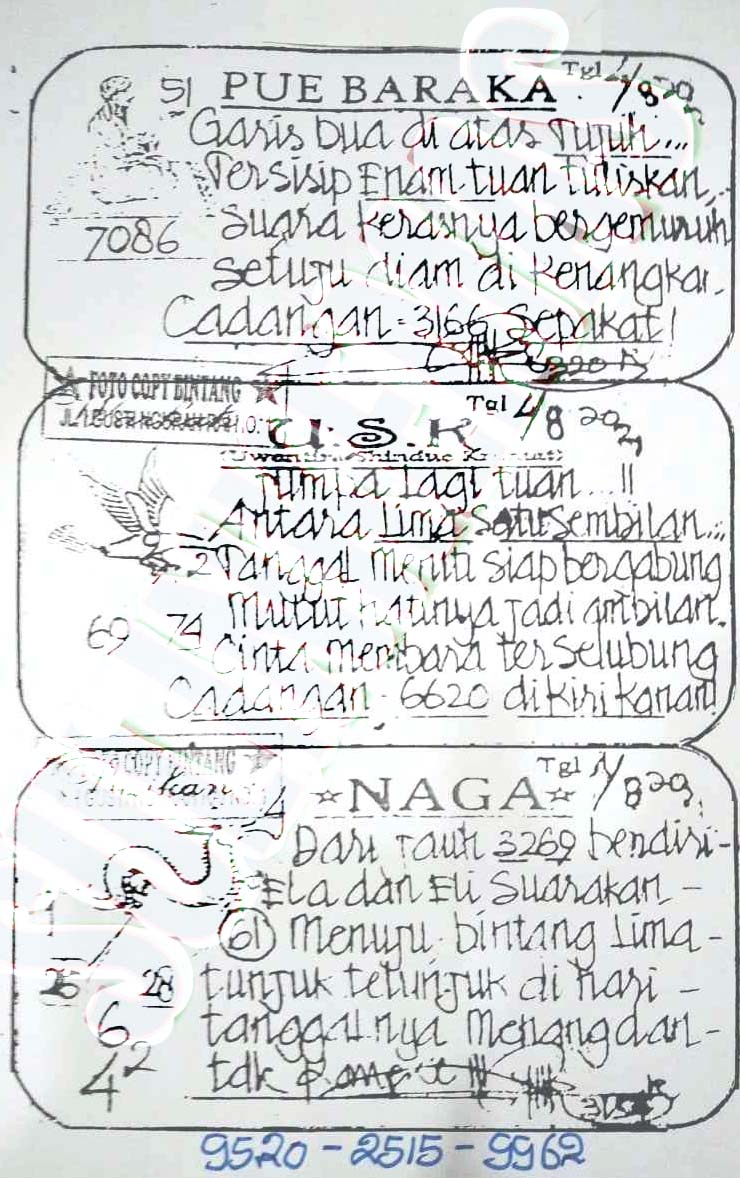 51 PUE BARAKA Tgl 4/8 2022
Garis Dua di atas Tujuh...
Tersisip Enam tuan Tuliskan,
7086 Suara Kerasnya bergemuruh
Setuju diam di Kerangka.
Cadangan = 3166 Sepakat!
FOTO COPY BINTANG
U.S.K Tgl 4/8 202
Jumpa Lagi tuan...!!
Antara Lima Satu Sembilan...
2 Tanggal Meniti siap bergabung
69 74 Mutut hatinya Jadi ambilan.
Cinta Membara terselubung
Cadangan 6620 dikiri kanan!
COPY BINTANG
☆NAGA☆ Tgl 4/8 202
Dari Jauh 3269 berdiri-
Ela dan Eli Suarakan -
1 61 Menuju bintang Lima-
25 28 tunjuk telunjuk di hari -
6 tanggalnya Menang dan-
42 tdk
9520 - 2515 - 9962